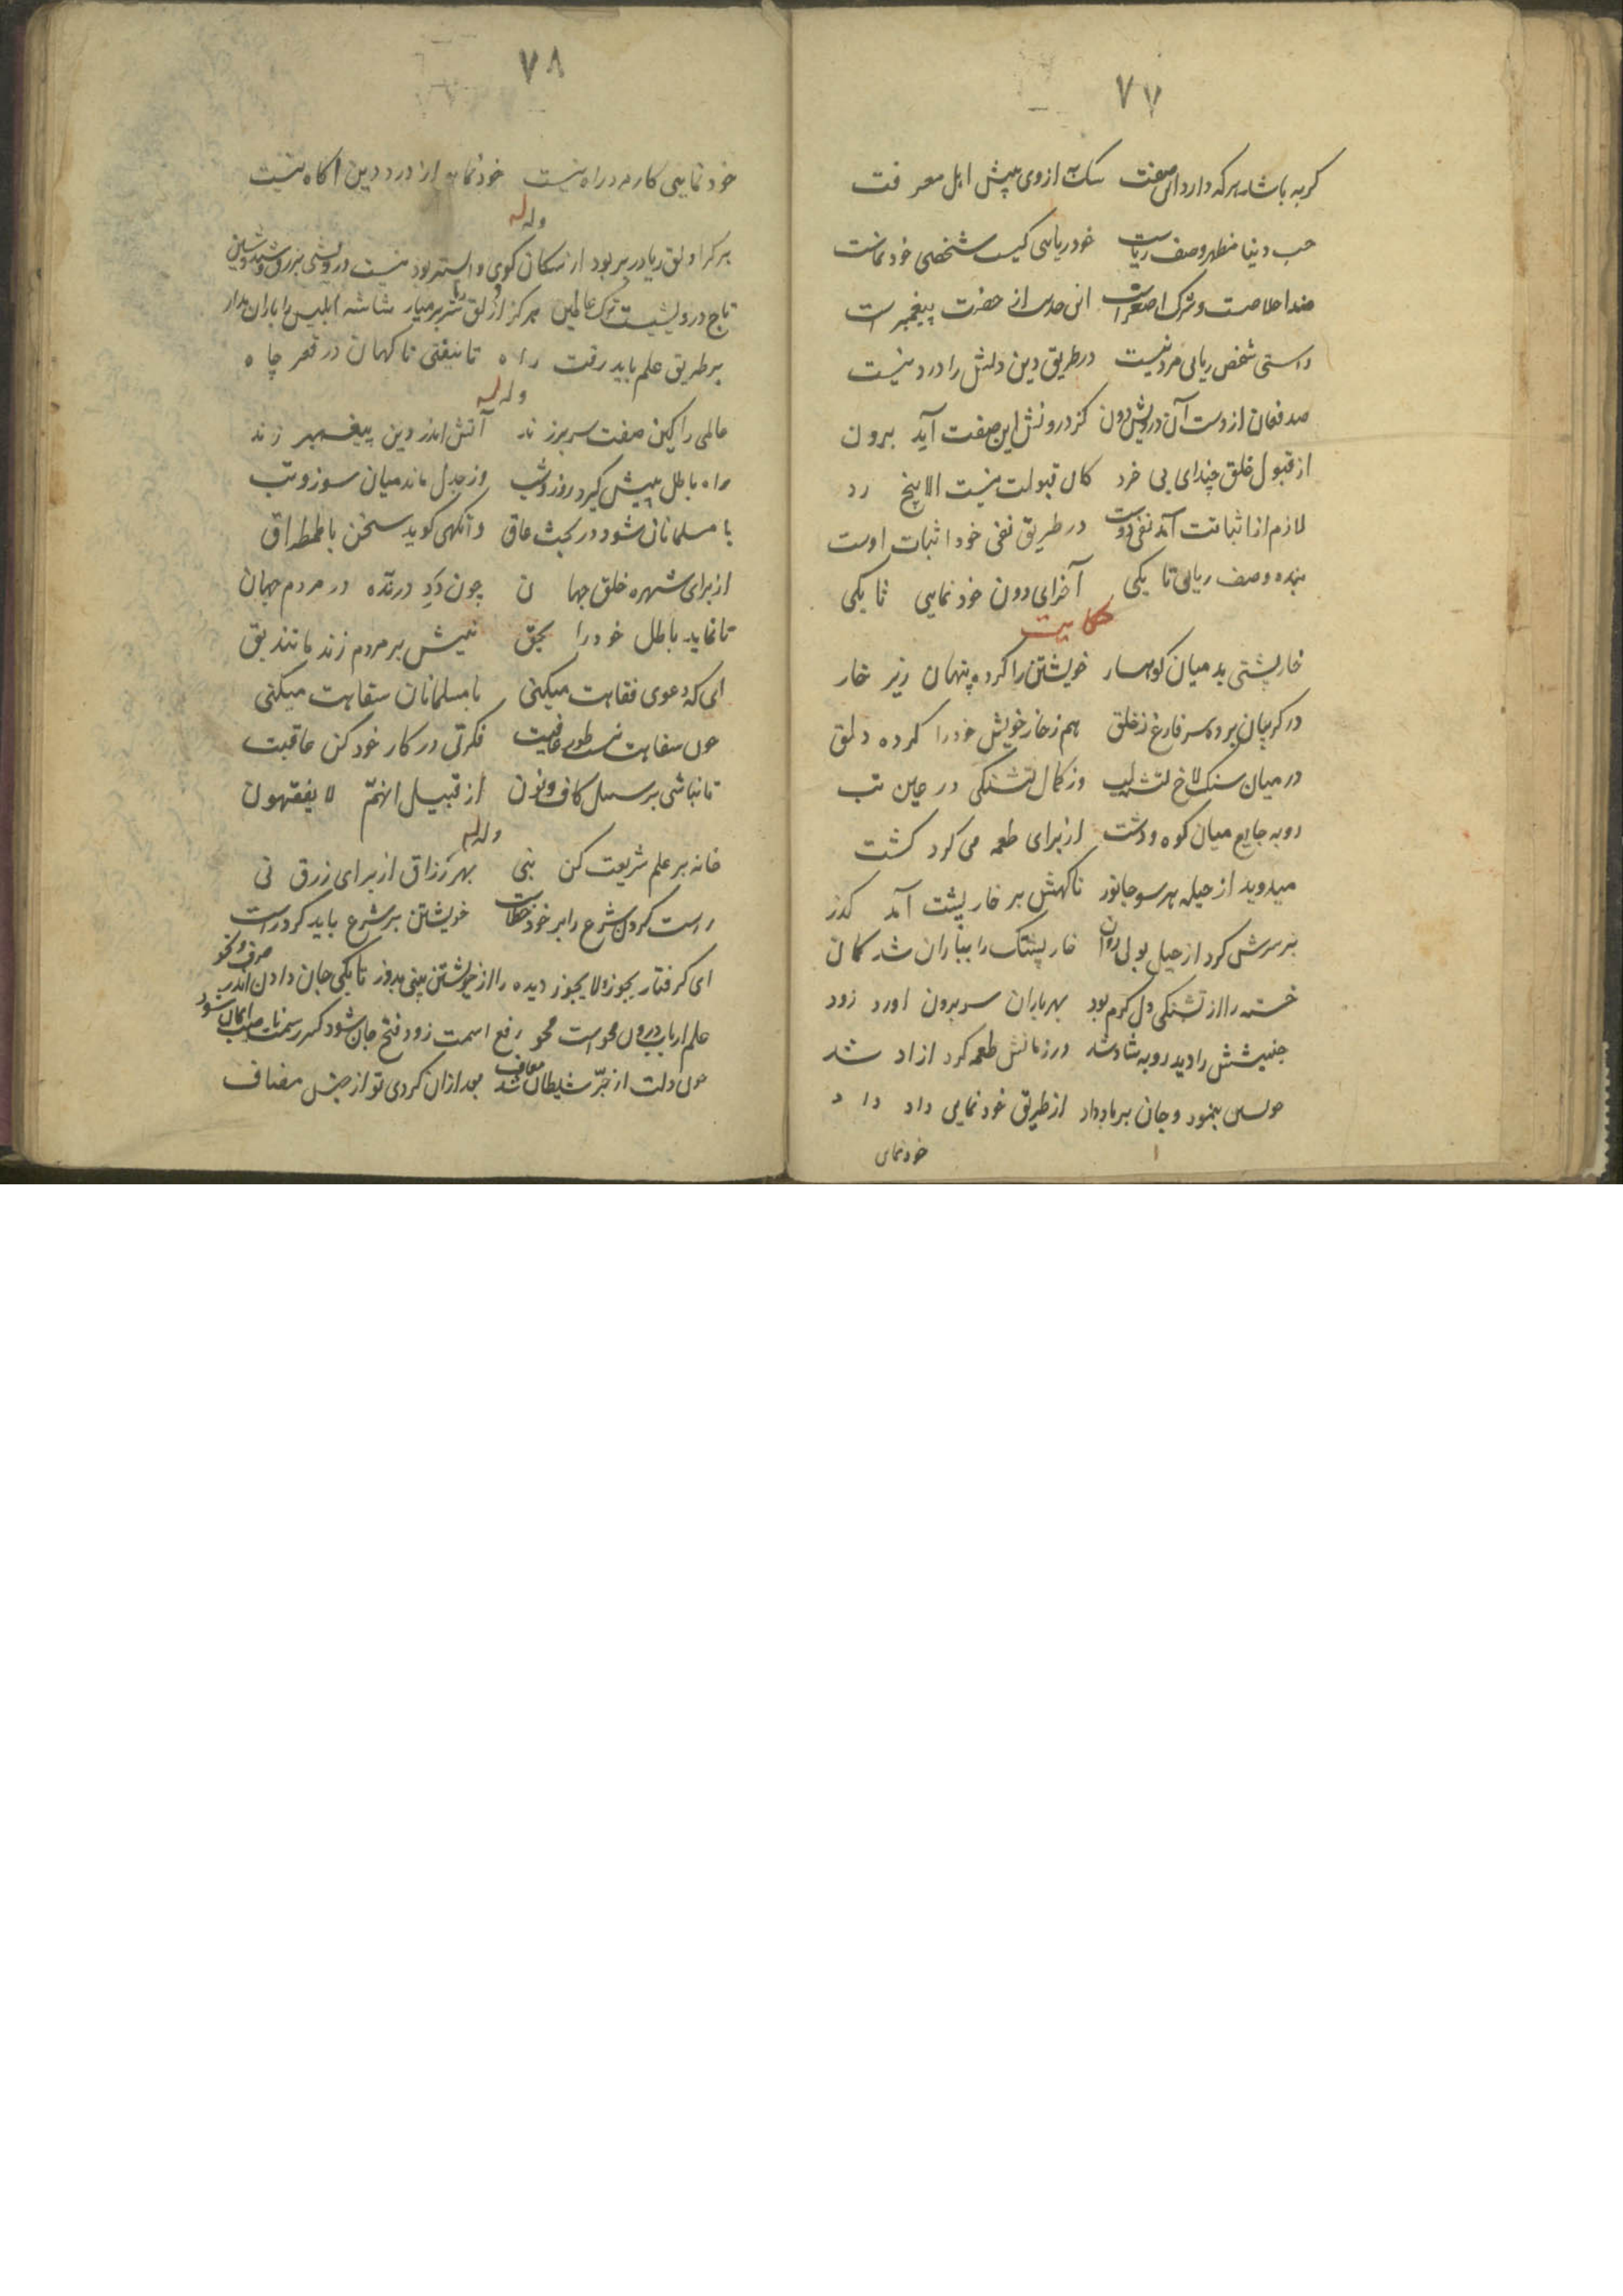 ۷۷
کربه باشد هرکه دارد این صفت سک به از وی پیش اهل معرفت
حب دنیا مظهر وصف ریاست خود ریایی کیست شخصی خودنماست
اصغراست حضرت پیغمبر است
راستی شخص ریایی مرد نیست در طریق دین دلش را درد نیست
صد فغان از دست آن درویش دون کز درونش این صفت آید برون
از قبول خلق چند ای بی خرد کان قبولت نیست الا بیخ رد
لازم از اثباتت آمد نفی دوست در طریق نفی خود اثبات اوست
بنده وصف ریایی تا بکی آخر ای دون خود نمایی تا بکی
حکایت
خارپشتی بد میان کوهسار خویشتن را کرده پنهان زیر خار
در کریبان برده سر فارغ ز خلق هم ز خار خویش خود را کرده دلق
در میان سنک لاخ تشنه لب وز کمال تشنکی در عین تب
روبه جایع میان کوه و دشت از برای طعمه می کرد کشت
میدوید از حیله هر سو جانور ناکهش بر خارپشت آمد کذر
بر سرش کرد از حیل بولی روان خارپشتک را بباران شد کمان
خسته را از تشنکی دل کرم بود بهر باران سر برون اورد زود
جنبشش را دید روبه شاد شد در زمانش طعمه کرد ازاد شد
بنمود و جان بر باد داد از طریق خود نمایی داد داد
خودنمای
۷۸
خود نمایی کار مرد راه نیست خودنما از درد دین اکاه نیست
وله
هر کرا دلق ریا در بر بود از سکان کوی واستر بود نیست درویشی بزرق و شید و شین
تاج درویشیست ترک عالمین هرکز از دلق ریا سر بر میار شاشه ابلیس را باران مدار
بر طریق علم باید رفت راه تا نیفتی ناکهان در قعر چاه
وله
عالمی را کین صفت سر بر زند آتش اندر دین پیغمبر زند
راه باطل پیش کیرد روز و شب وز جدل ماند میان سوز و تب
با مسلمانان شود در بحث عاق وآنکهی کوید سخن با طمطراق
از برای شهره خلق جهان چون دد درنده در مردم جهان
تا نماید باطل خود را بحق نیش بر مردم زند مانند بق
ای که دعوی فقاهت میکنی با مسلمانان سفاهت میکنی
چون سفاهت نیست طور عافیت فکرتی در کار خود کن عاقبت
تا نباشی بر سبیل کاف و نون از قبیل انهم لا یفقهون
وله
خانه بر علم شریعت کن بنی بهر رزاق از برای زرق نی
راست کردن شرع را بر خود خطاست خویشتن بر شرع باید کرد راست
ای کرفتار یجوز و لا یجوز دیده را از خویشتن بینی بدوز تا بکی جان دادن اندر صرف و نحو
علم ارباب درون محو است محو رفع اسمت زود فتح جان شود کسر رسمت
چون دلت از جرّ شیطان شد معاف بعد ازان کردی تو از جنس مضاف